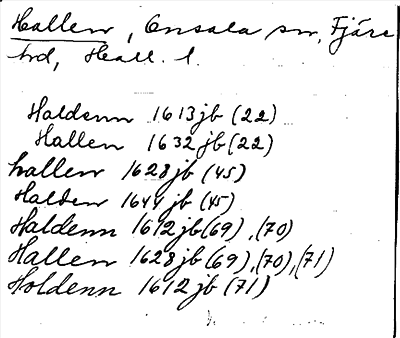 Hallen, Onsala sn, Fjäre
hd, Hall. l.
Haldenn 1613 jb (22)
Hallen 1632 jb (22)
hallen 1628 jb (45)
Halden 1644 jb (45)
Haldenn 1612 jb (69), (70)
Hallen 1628 jb (69), (70), (71)
Holdenn 1612 jb (71)